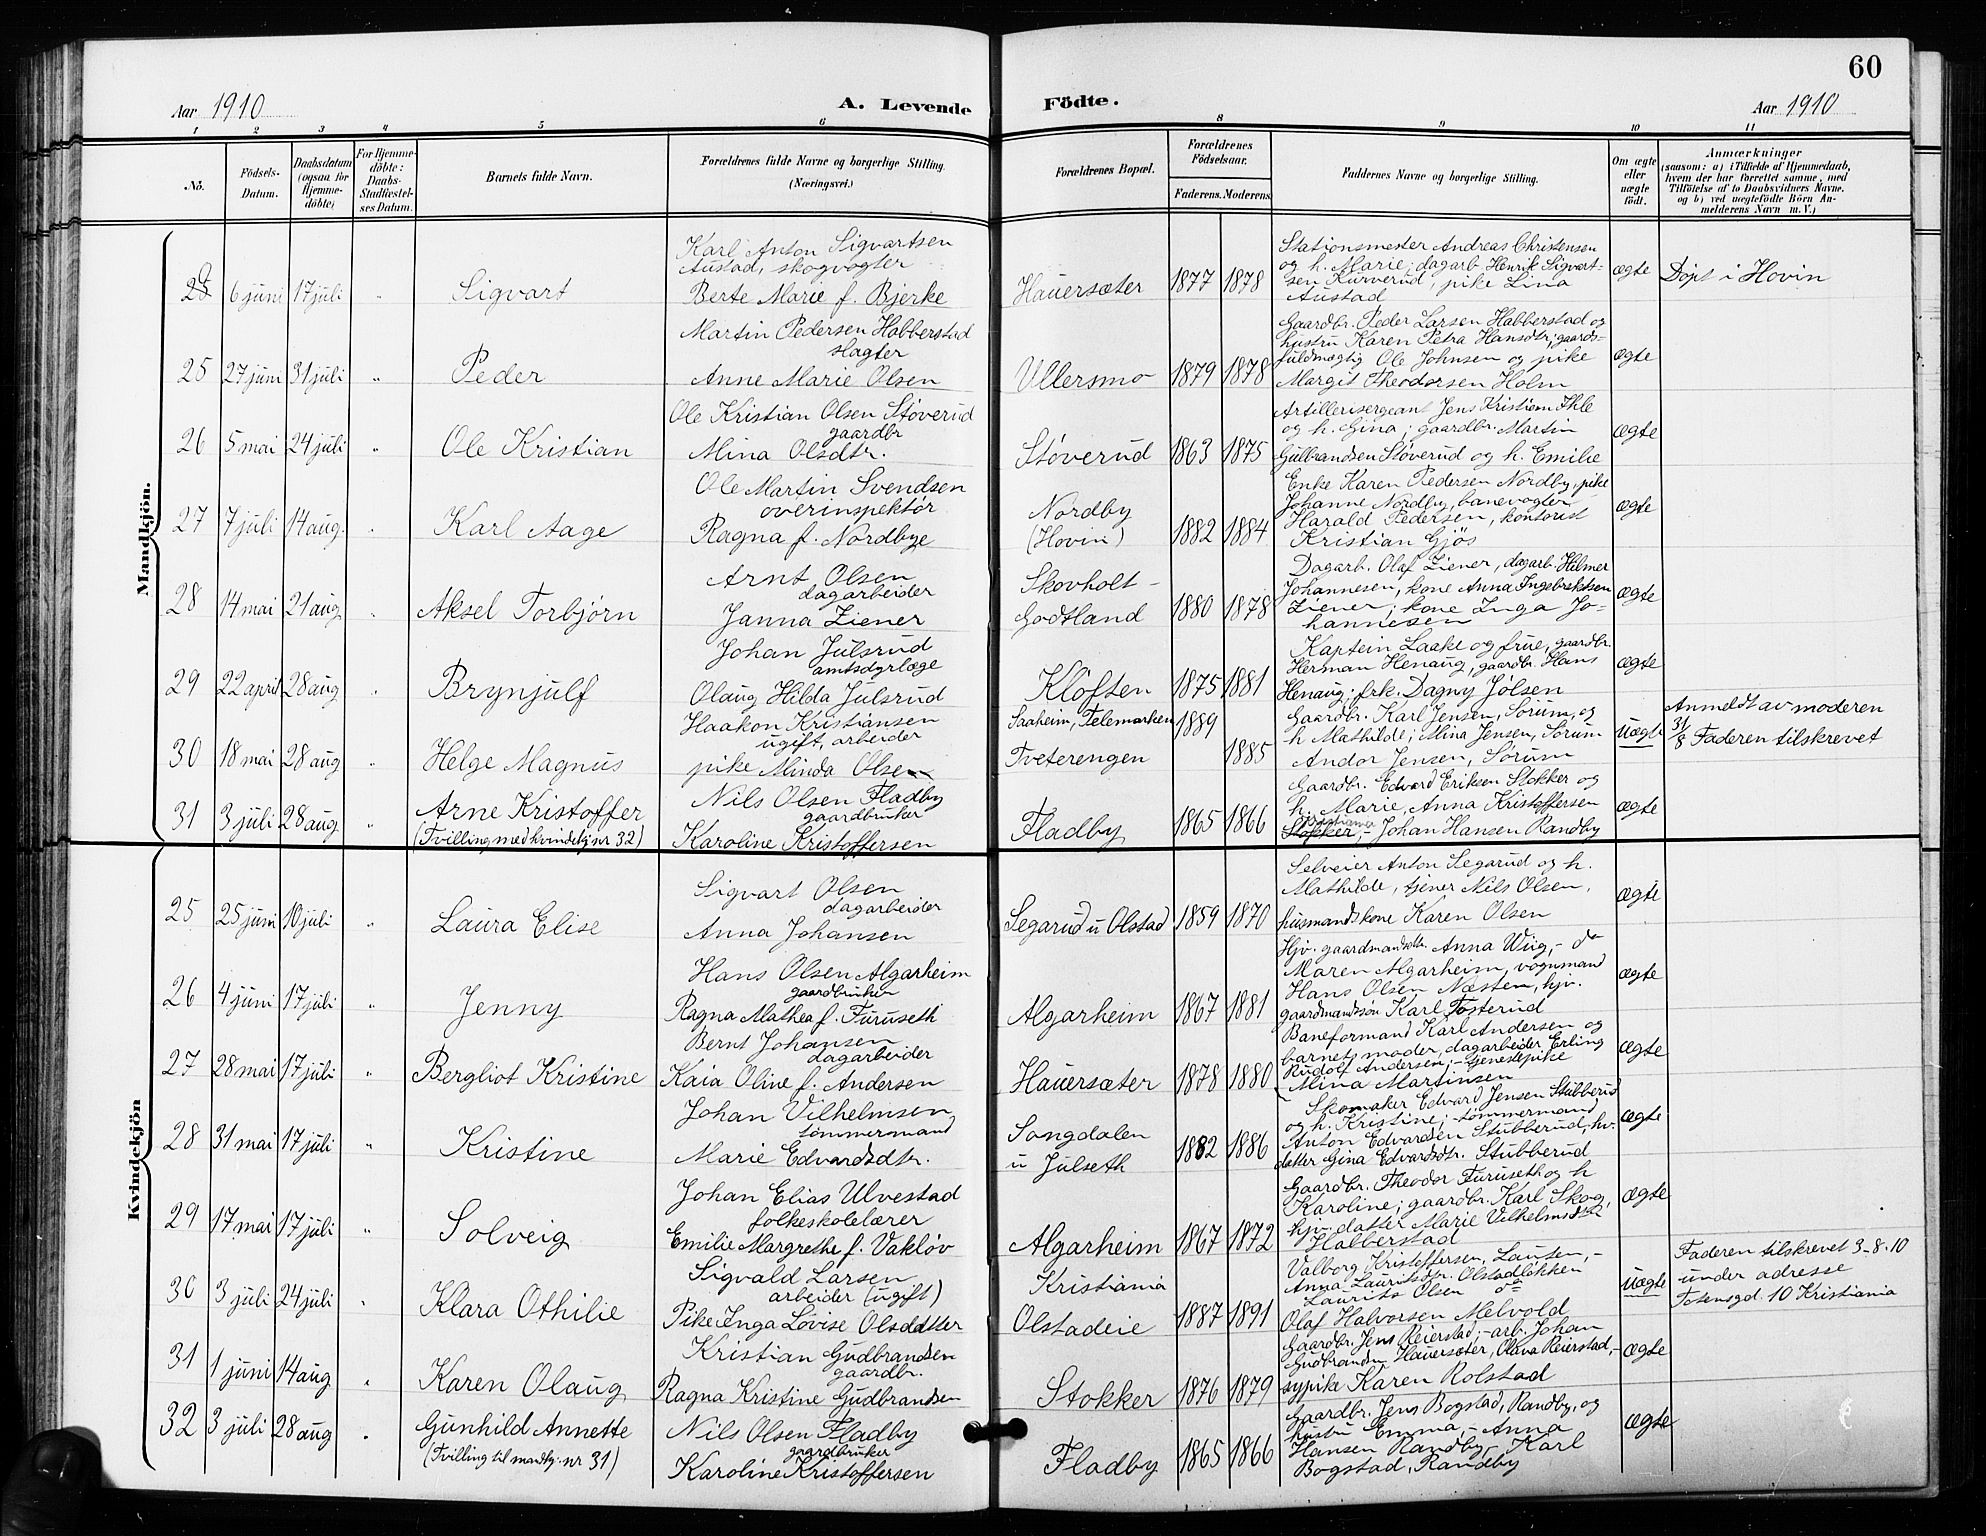 60
Aar 1910 A. Levende Födte. Aar 1910
1 2 3 4 5 6 8 9 10 11
Nö. Födsels-Datum. Daabsdatum (ogsaa for Hjemme-döbte) For Hjemme-döbte: Daabs-Stadfæstel-ses Datum. Barnets fulde Navn. Forældrenes fulde Navne og borgerlige Stilling. (Næringsvei.) Forældrenes Bopæl. Forældrenes Födselsaar. Faderens. Moderens. Faddernes Navne og borgerlige Stilling. Om ægte eller uægte födt. Anmærkninger (saasom: a) i Tilfælde af Hjemmedaab, hvem der har forrettet samme, med Tilföielse af to Daabsvidners Navne. og b) ved uægtefödte Börn An-melderens Navn m. V.)
Mandkjön.
Karl Anton Sigvartsen
Austad, skogvogter
Berte Marie f. Bjerke
6 juni 17 juli " Sigvart
Hauersæter 1877 1878
Stationsmester Andreas Christensen
og h. Marie; dagarb. Henrik Sigvart-
sen Kurverud, pike Lina
Austad
ægte Døpt i Hovin
25 27 juni 31 juli " Peder
Martin Pedersen Habberstad
slagter
Anne Marie Olsen
Ullersmo 1879 1878
Gaardbr. Peder Larsen Habberstad og
hustru Karen Petra Hansdtr; gaards-
fuldmægtig Ole Johnsen og pike
Margit Theodorsen Holm
ægte
26 5 mai 24 juli " Ole Kristian
Ole Kristian Olsen Støverud
gaardbr
Mina Olsdtr.
Støverud 1863 1875
Artillerisergeant Jens Kristian Ihle
og h. Gina; gaardbr. Martin
Gulbrandsen Støverud og h. Emilie
ægte
27 7 juli 14 aug. " Karl Aage
Ole Martin Svendsen
overinspektør
Ragna f. Nordbye
Nordby
(Hovin) 1882 1884
Enke Karen Pedersen Nordby, pike
Johanne Nordby, banevogter
Harald Pedersen, kontorist
Kristian Gjøs
ægte
28 14 mai 21 aug " Aksel Torbjørn
Arnt Olsen
dagarbeider
Janna Ziener
Skovholt -
Godtland 1880 1878
Dagarb. Olaf Ziener, dagarb. Hilmer
Johannesen, kone Anna Ingebrektsen
Ziener; kone Inga Jo-
hannesen
ægte
29 22 april 28 aug " Brynjulf
Johan Julsrud
amtsdyrlæge
Olaug Hilda Julsrud
Kløften 1875 1881
Kaptein Laake og frue, gaardbr.
Herman Henaug, gaardbr. Hans
Henaug; frk. Dagny Jølsen
ægte
30 18 mai 28 aug " Helge Magnus
Haakon Kristiansen
ugift, arbeider
pike Minda Olsen
Saaheim, Telemarken 1889
Tveterengen 1885
Gaardbr. Karl Jensen, Sørum, og
h Mathilde; Mina Jensen, Sørum
Andor Jensen, Sørum
uægte
Anmeldt av moderen
31/8 Faderen tilskrevet
31 3 juli 28 aug " Arne Kristoffer
(Tvilling med kvindekj nr 32)
Nils Olsen Fladby
gaardbruker
Karoline Kristoffersen
Fladby 1865 1866
Gaardbr. Edvard Eriksen Stokker og
h. Marie, Anna Kristoffersen
Kristiania
Stokker, - Johan Hansen Randby
ægte
Kvindekjön
25 25 juni 10 juli " Laura Elise
Sigvart Olsen
dagarbeider
Anna Johansen
Segarud u Olstad 1859 1870
Selveier Anton Segarud og h.
Mathilde, tjener Nils Olsen,
husmandskone Karen Olsen
ægte
26 4 juni 17 juli " Jenny
Hans Olsen Algarheim
gaardbruker
Ragna Mathea f. Furuseth
Algarheim 1867 1881
Hjv. gaardmandsdtr. Anna Wiig, - do
Maren Algarheim, vognmand
Hans Olsen Næsten, hjv.
gaardmandssøn Karl Fosterud
ægte
27 28 mai 17 juli " Bergliot Kristine
Bernt Johansen
dagarbeider
Kaia Oline f. Andersen
Hauersæter 1878 1880
Baneformand Karl Andersen og
barnets moder, dagarbeider Erling
Rudolf Andersen; - tjenestepike
Mina Martinsen
ægte
28 31 mai 17 juli " Kristine
Johan Vilhelmsen
tømmermand
Marie Edvardsdtr.
Songdalen
u Julseth 1882 1886
Skomaker Edvard Jensen Stubberud
og h. Kristine; tømmermand
Anton Edvardsen Stubberud, hv.
datter Gina Edvardsdtr. Stubberud
ægte
29 17 mai 17 juli " Solveig
Johan Elias Ulvestad
folkeskolelærer
Emilie Margrethe f. Vakløv
Algarheim 1867 1872
Gaardbr. Theodor Furuseth og h
Karoline; gaardbr. Karl Skog,
hjv. datter Marie Vilhelmsdtr
Habberstad
ægte
30 3 juli 24 juli " Klara Othilie
Sigvald Larsen
arbeider (ugift)
Pike Inga Lovise Olsdatter
Kristiania
Olstadeie 1887 1891
Valborg Kristoffersen, Lausen, -
Anna Lauritsdtr. Olstadløkken
Laurits Olsen do
Olaf Halvorsen Melvold
uægte
Faderen tilskrevet 3-8-10
under adresse
Totensgd. 10 Kristiania
31 1 juni 14 aug " Karen Olaug
Kristian Gudbrandsen
gaardbr.
Ragna Kristine Gudbrandsen
Stokker 1876 1879
Gaardbr. Jens Reierstad, - arb. Johan
Gudbrandsen Hauersæter, Olava Reierstad, -
sypike Karen Rolstad
ægte
32 3 juli 28 aug " Gunhild Annette
(Tvilling til mandkj. nr 31)
Nils Olsen Fladby
gaardbruker
Karoline Kristoffersen
Fladby 1865 1866
Gaardbr. Jens Bogstad, Randby, og
hustru Emma, - Anna
Hansen Randby, Karl
Bogstad, Randby
ægte